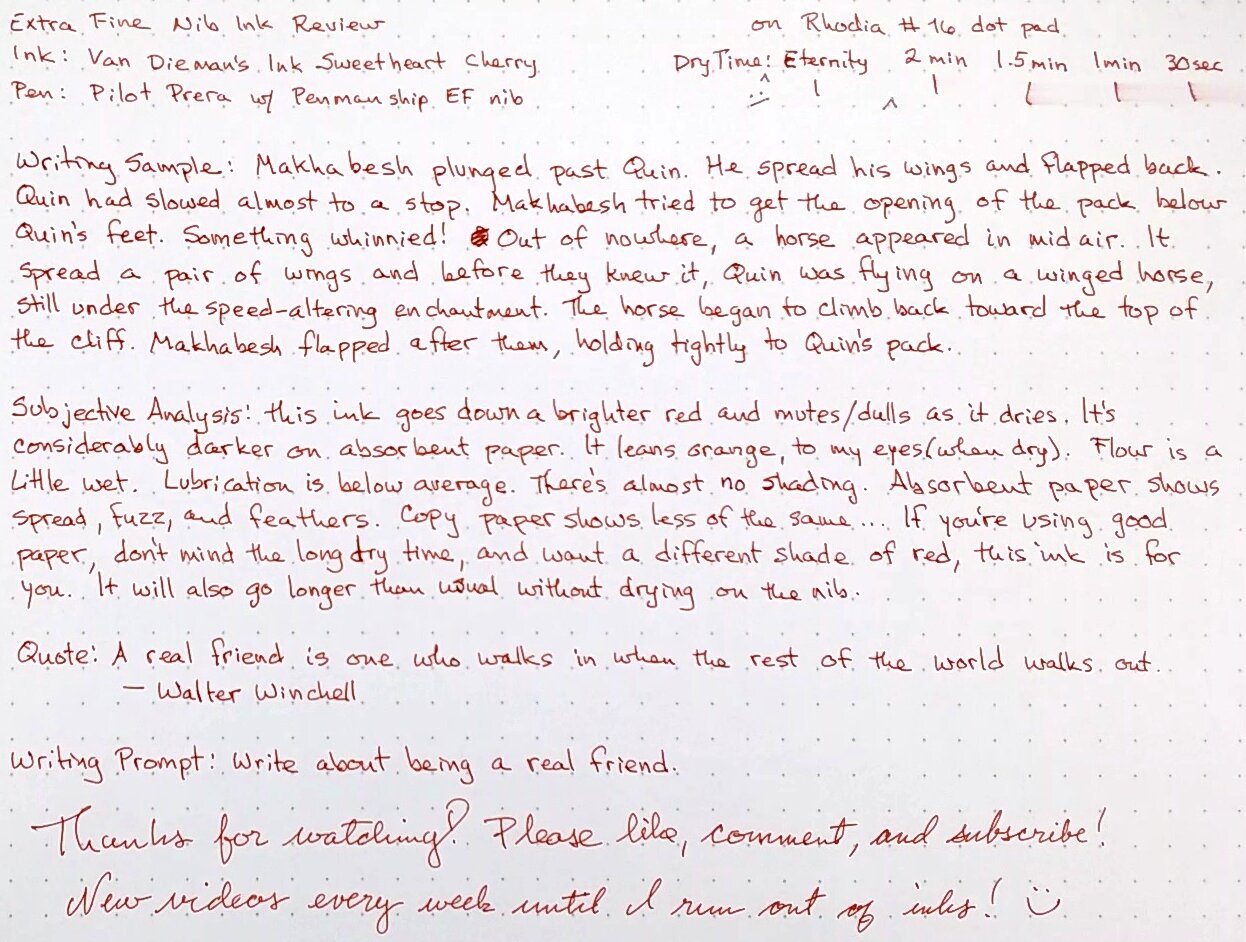 Extra Fine Nib Ink Review on Rhodia #16 dot pad
Ink: Van Dieman's Ink Sweetheart Cherry Dry Time: Eternity 2 min 1.5 min 1 min 30 sec
Pen: Pilot Prera w/ Penmanship EF nib
Writing Sample: Makhabesh plunged past Quin. He spread his wings and flapped back.
Quin had slowed almost to a stop. Makhabesh tried to get the opening of the pack below
Quin's feet. Something whinnied! Out of nowhere, a horse appeared in mid air. It
spread a pair of wings and before they knew it, Quin was flying on a winged horse,
still under the speed-altering enchantment. The horse began to climb back toward the top of
the cliff. Makhabesh flapped after them, holding tightly to Quin's pack.
Subjective Analysis: this ink goes down a brighter red and mutes/dulls as it dries. It's
considerably darker on absorbent paper. It leans orange, to my eyes (when dry). Flour is a
little wet. Lubrication is below average. There's almost no shading. Absorbent paper shows
spread, fuzz, and feathers. Copy paper shows less of the same... If you're using good
paper, don't mind the long dry time, and want a different shade of red, this ink is for
you. It will also go longer than usual without drying on the nib.
Quote: A real friend is one who walks in when the rest of the world walks out.
- Walter Winchell
Writing Prompt: Write about being a real friend.
Thanks for watching! Please like, comment, and subscribe!
New videos every week until I run out of inks! :)